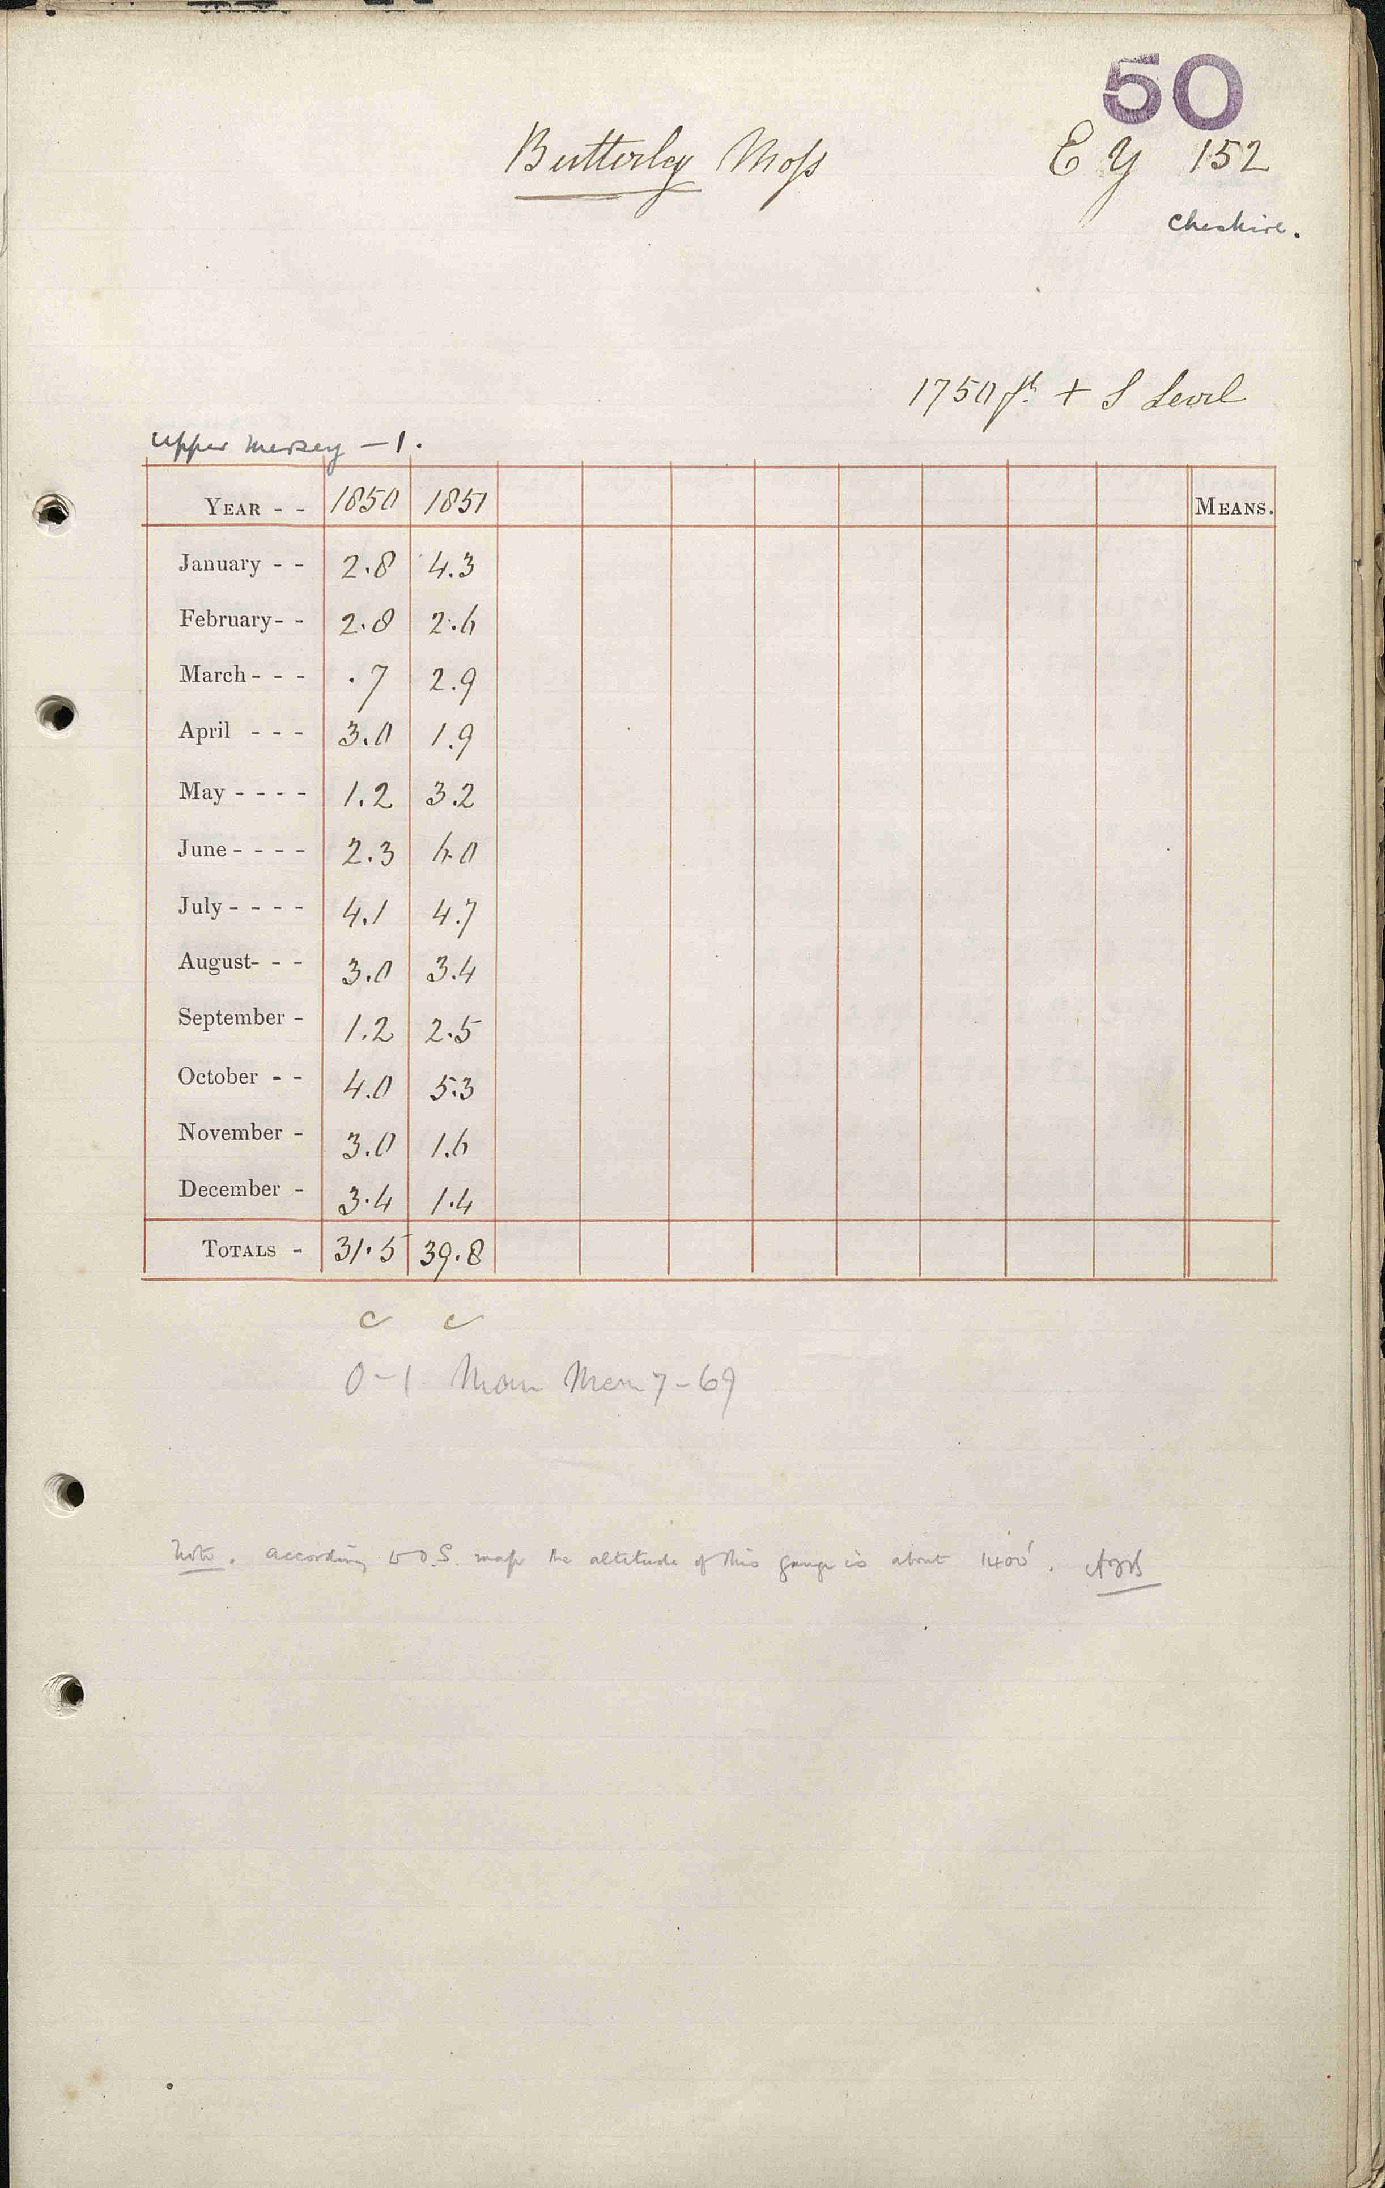 50
Butterley Moss E Y 152
Cheshire.
1750 ft + S Level
Upper Mersey - 1.
YEAR - - 1850 1851 MEANS.
January - - 2.8 4.3
February - - 2.8 2.6
March - - - .7 2.9
April - - - 3.0 1.9
May - - - - 1.2 3.2
June - - - - 2.3 6.0
July - - - - 4.1 4.7
August - - - 3.0 3.4
September - 1.2 2.5
October - - 4.0 5.3
November - 3.0 1.6
December - 3.4 1.4
TOTALS - 31.5 39.8
c c
0-1 Man Mem 7-69
Note. according to O.S. map the altitude of this gauge is about 1400'.